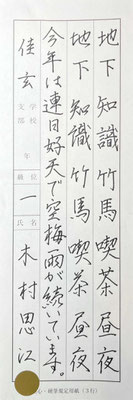 地下知識竹馬喫茶昼夜
地下知識竹馬喫茶昼夜
今年は連日好天で空梅雨が続いています。
佳玄 学校 支部 年 級位 一 氏名 木村思江
硬筆規定用紙(3行)